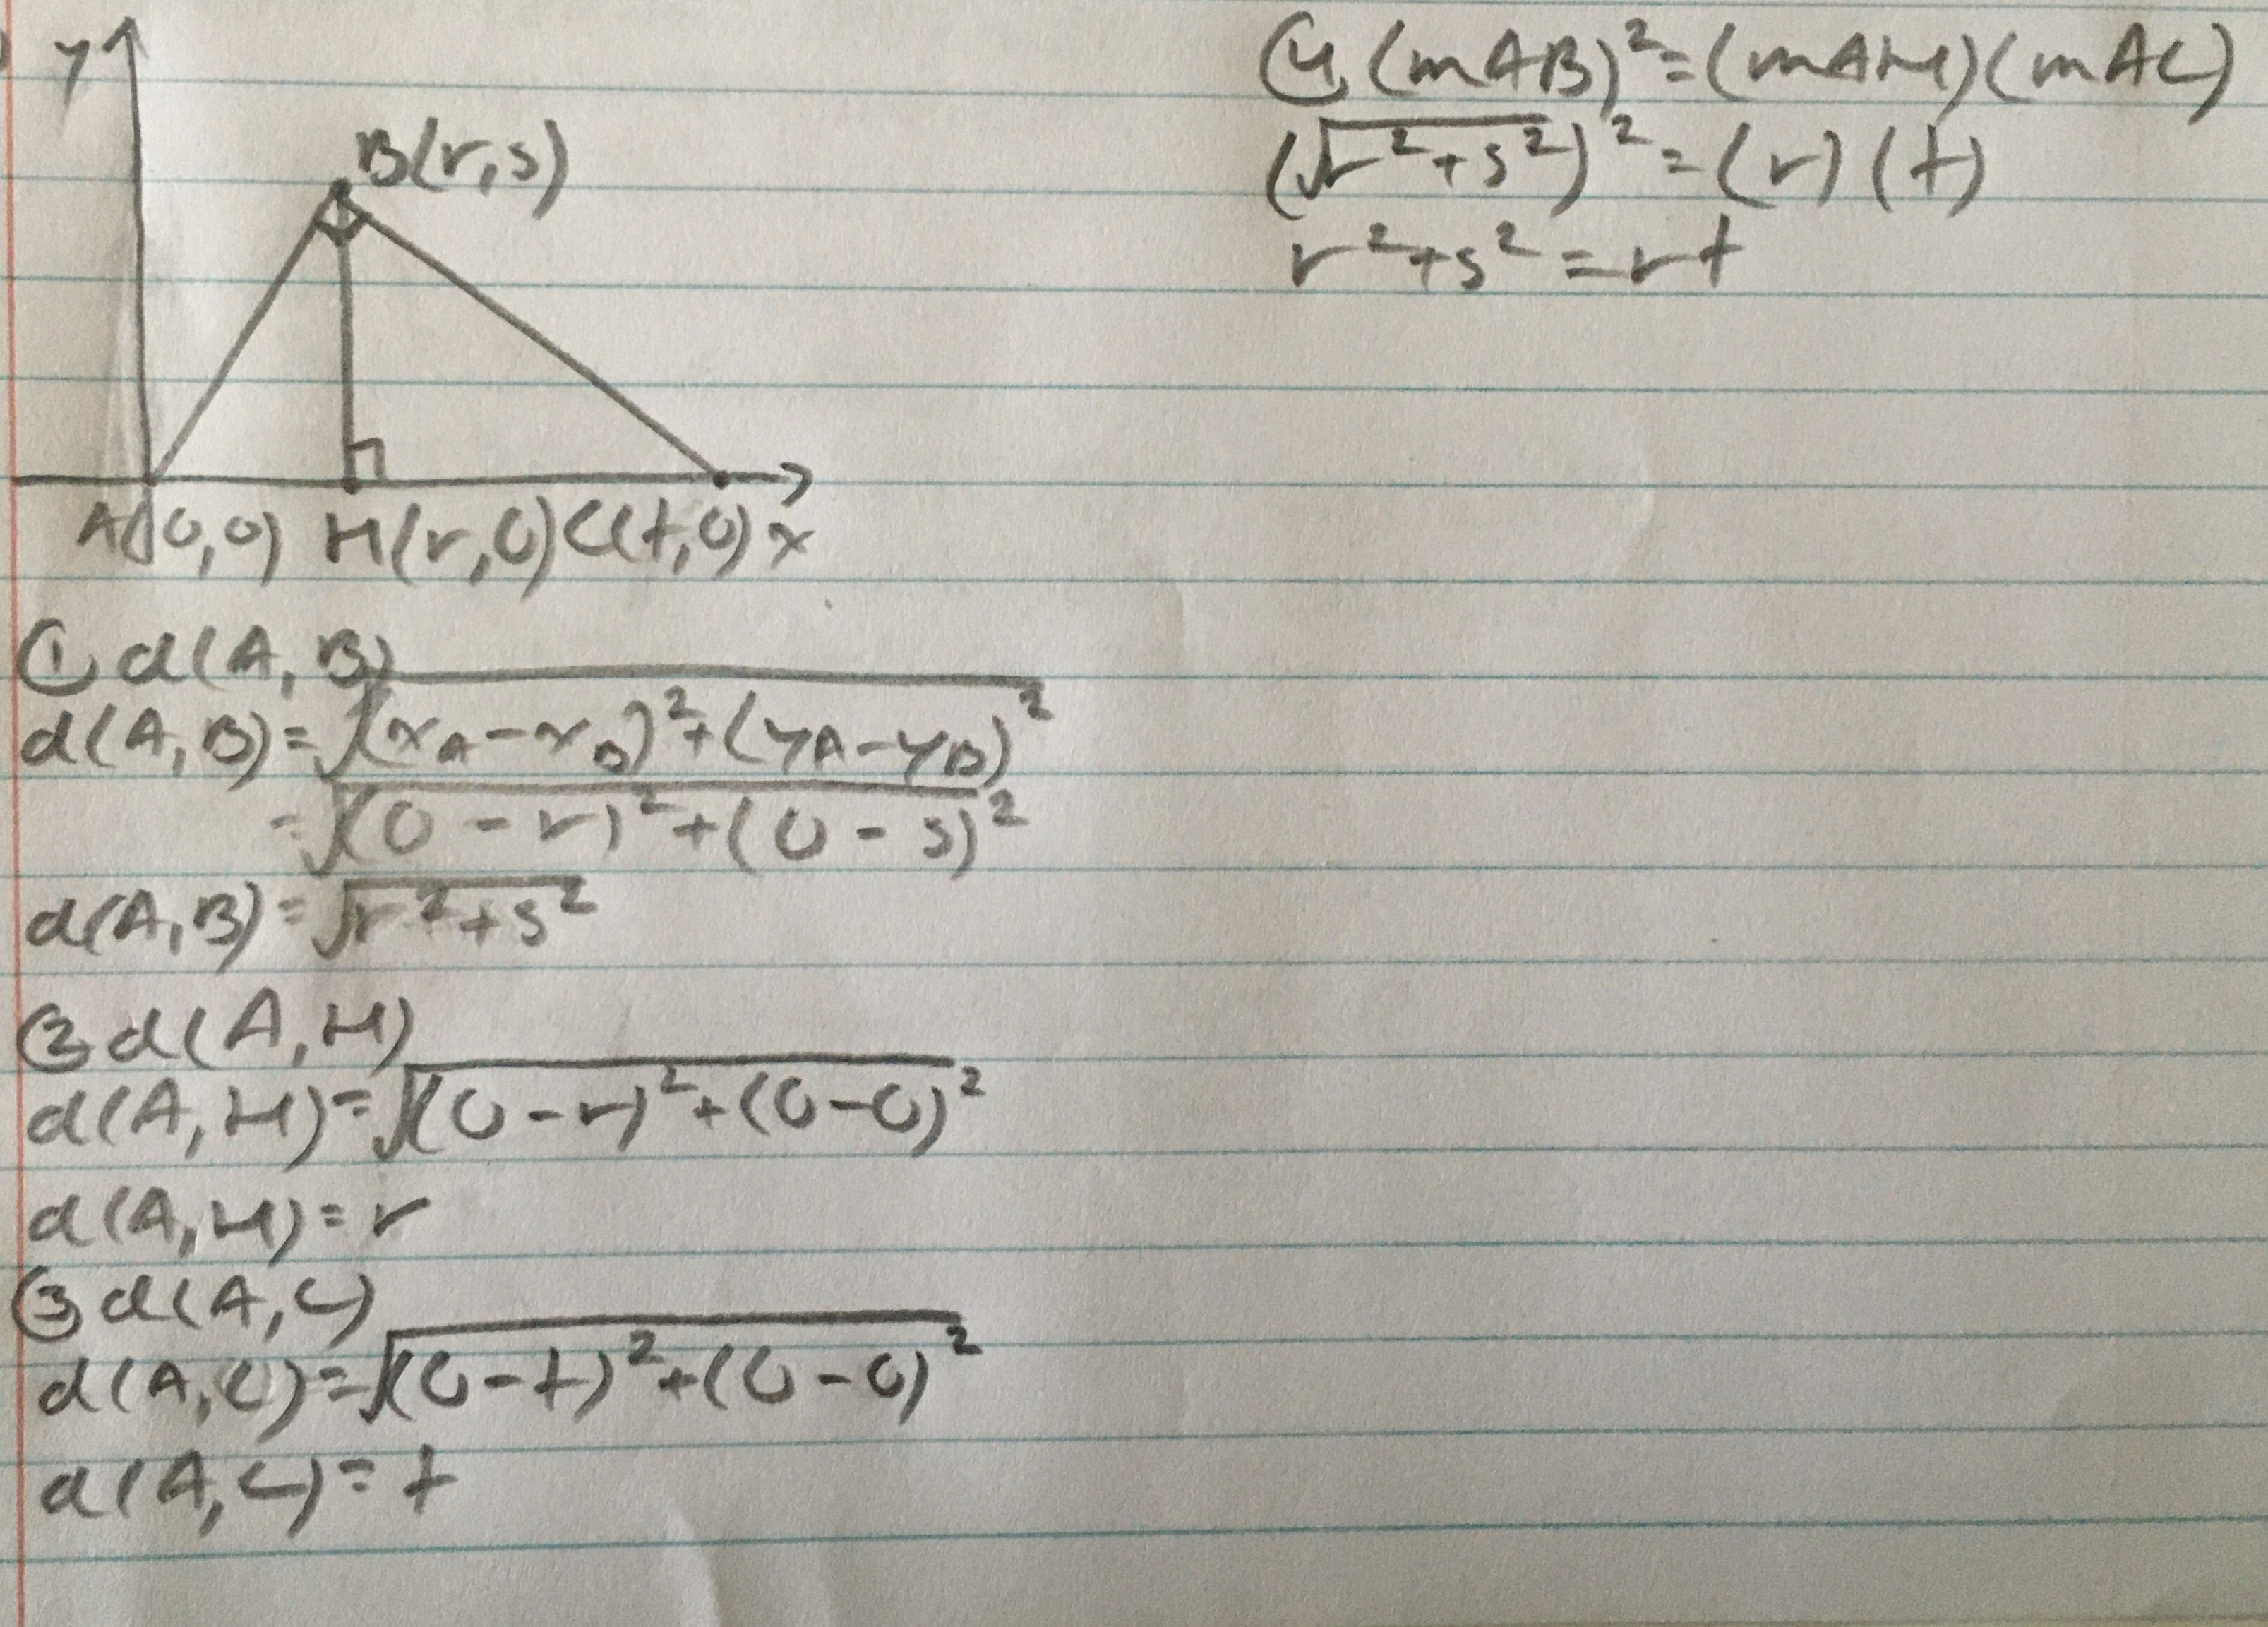 y
B(r,s)
A(0,0) H(r,0) C(t,0) x
① d(A,B)
d(A,B)=√(x_A-x_B)²+(y_A-y_B)²
=√(0-r)²+(0-s)²
d(A,B)=√r²+s²
② d(A,H)
d(A,H)=√(0-r)²+(0-0)²
d(A,H)=r
③ d(A,C)
d(A,C)=√(0-t)²+(0-0)²
d(A,C)=t
④ (mAB)²=(mAH)(mAC)
(√r²+s²)²=(r)(t)
r²+s²=rt